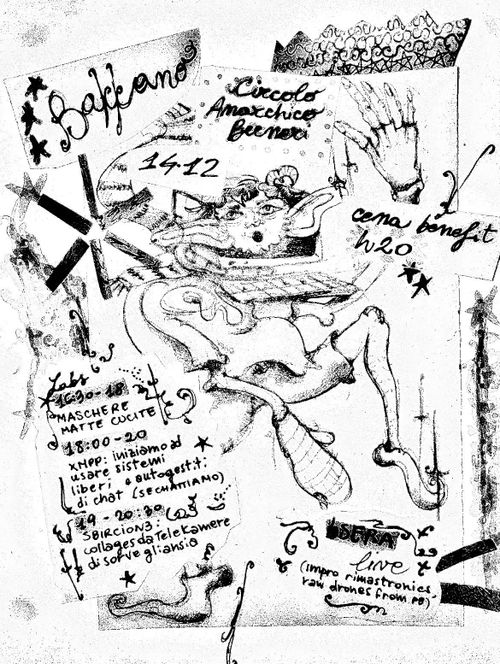 Baffano
Circolo
Anarchico
Berneri
14.12
cena benefit
h20
Labs
16:30-18
MASCHERE
MATTE CUCITE
18:00-20
XMPP: iniziamo ad
usare sistemi
liberi e autogestiti
di chat (SECHATTIAMO)
19-20:30
SBIRCION3:
collages da telekamere
di sorveglianza
SERA
live
(impro rimastronics,
raw drones from PD)